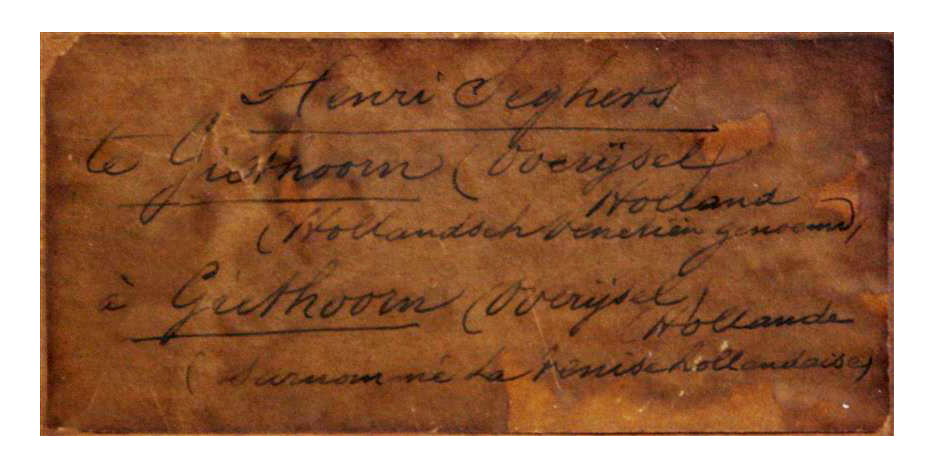 Henri Seghers
te Giethoorn (Overijsel)
Holland
(Hollandsch Venetiën genoemd)
à Giethoorn (Overijsel)
Hollande
(Surnommé La Venise hollandaise)